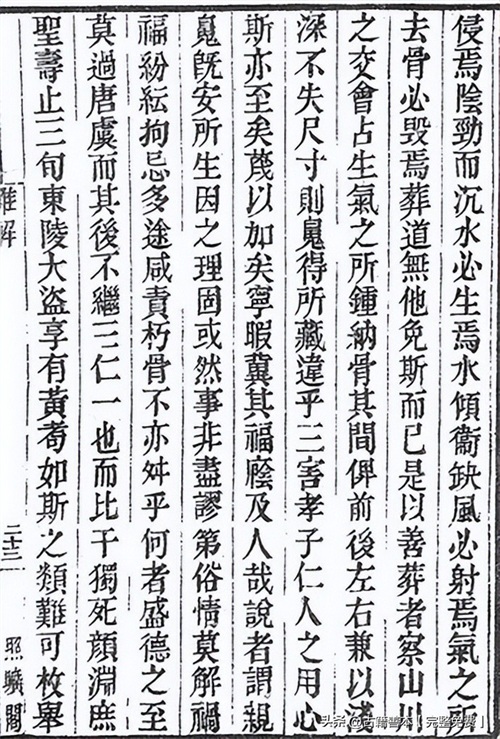 侵焉陰勁而沉水必生焉水傾衞缺風必射焉氣之所
去骨必毀焉葬道無他免斯而已是以善葬者察山川
之交會占生氣之所鍾納骨其間俾前後左右兼以淺
深不失尺寸則䰟得所藏違乎三害孝子仁人之用心
斯亦至矣蔑以加矣寧暇冀其福廕及人哉說者謂親
䰟旣安所生因之理固或然事非盡謬第俗情莫解禍
福紛紜拘忌多途咸責朽骨不亦舛乎何者盛德之至
莫過唐虞而其後不繼三仁一也而比干獨死顏淵庶
聖壽止三旬東陵大盜享有黃耇如斯之類難可枚舉
解
二十三
照曠閣
头条@古籍善本【完整免费】